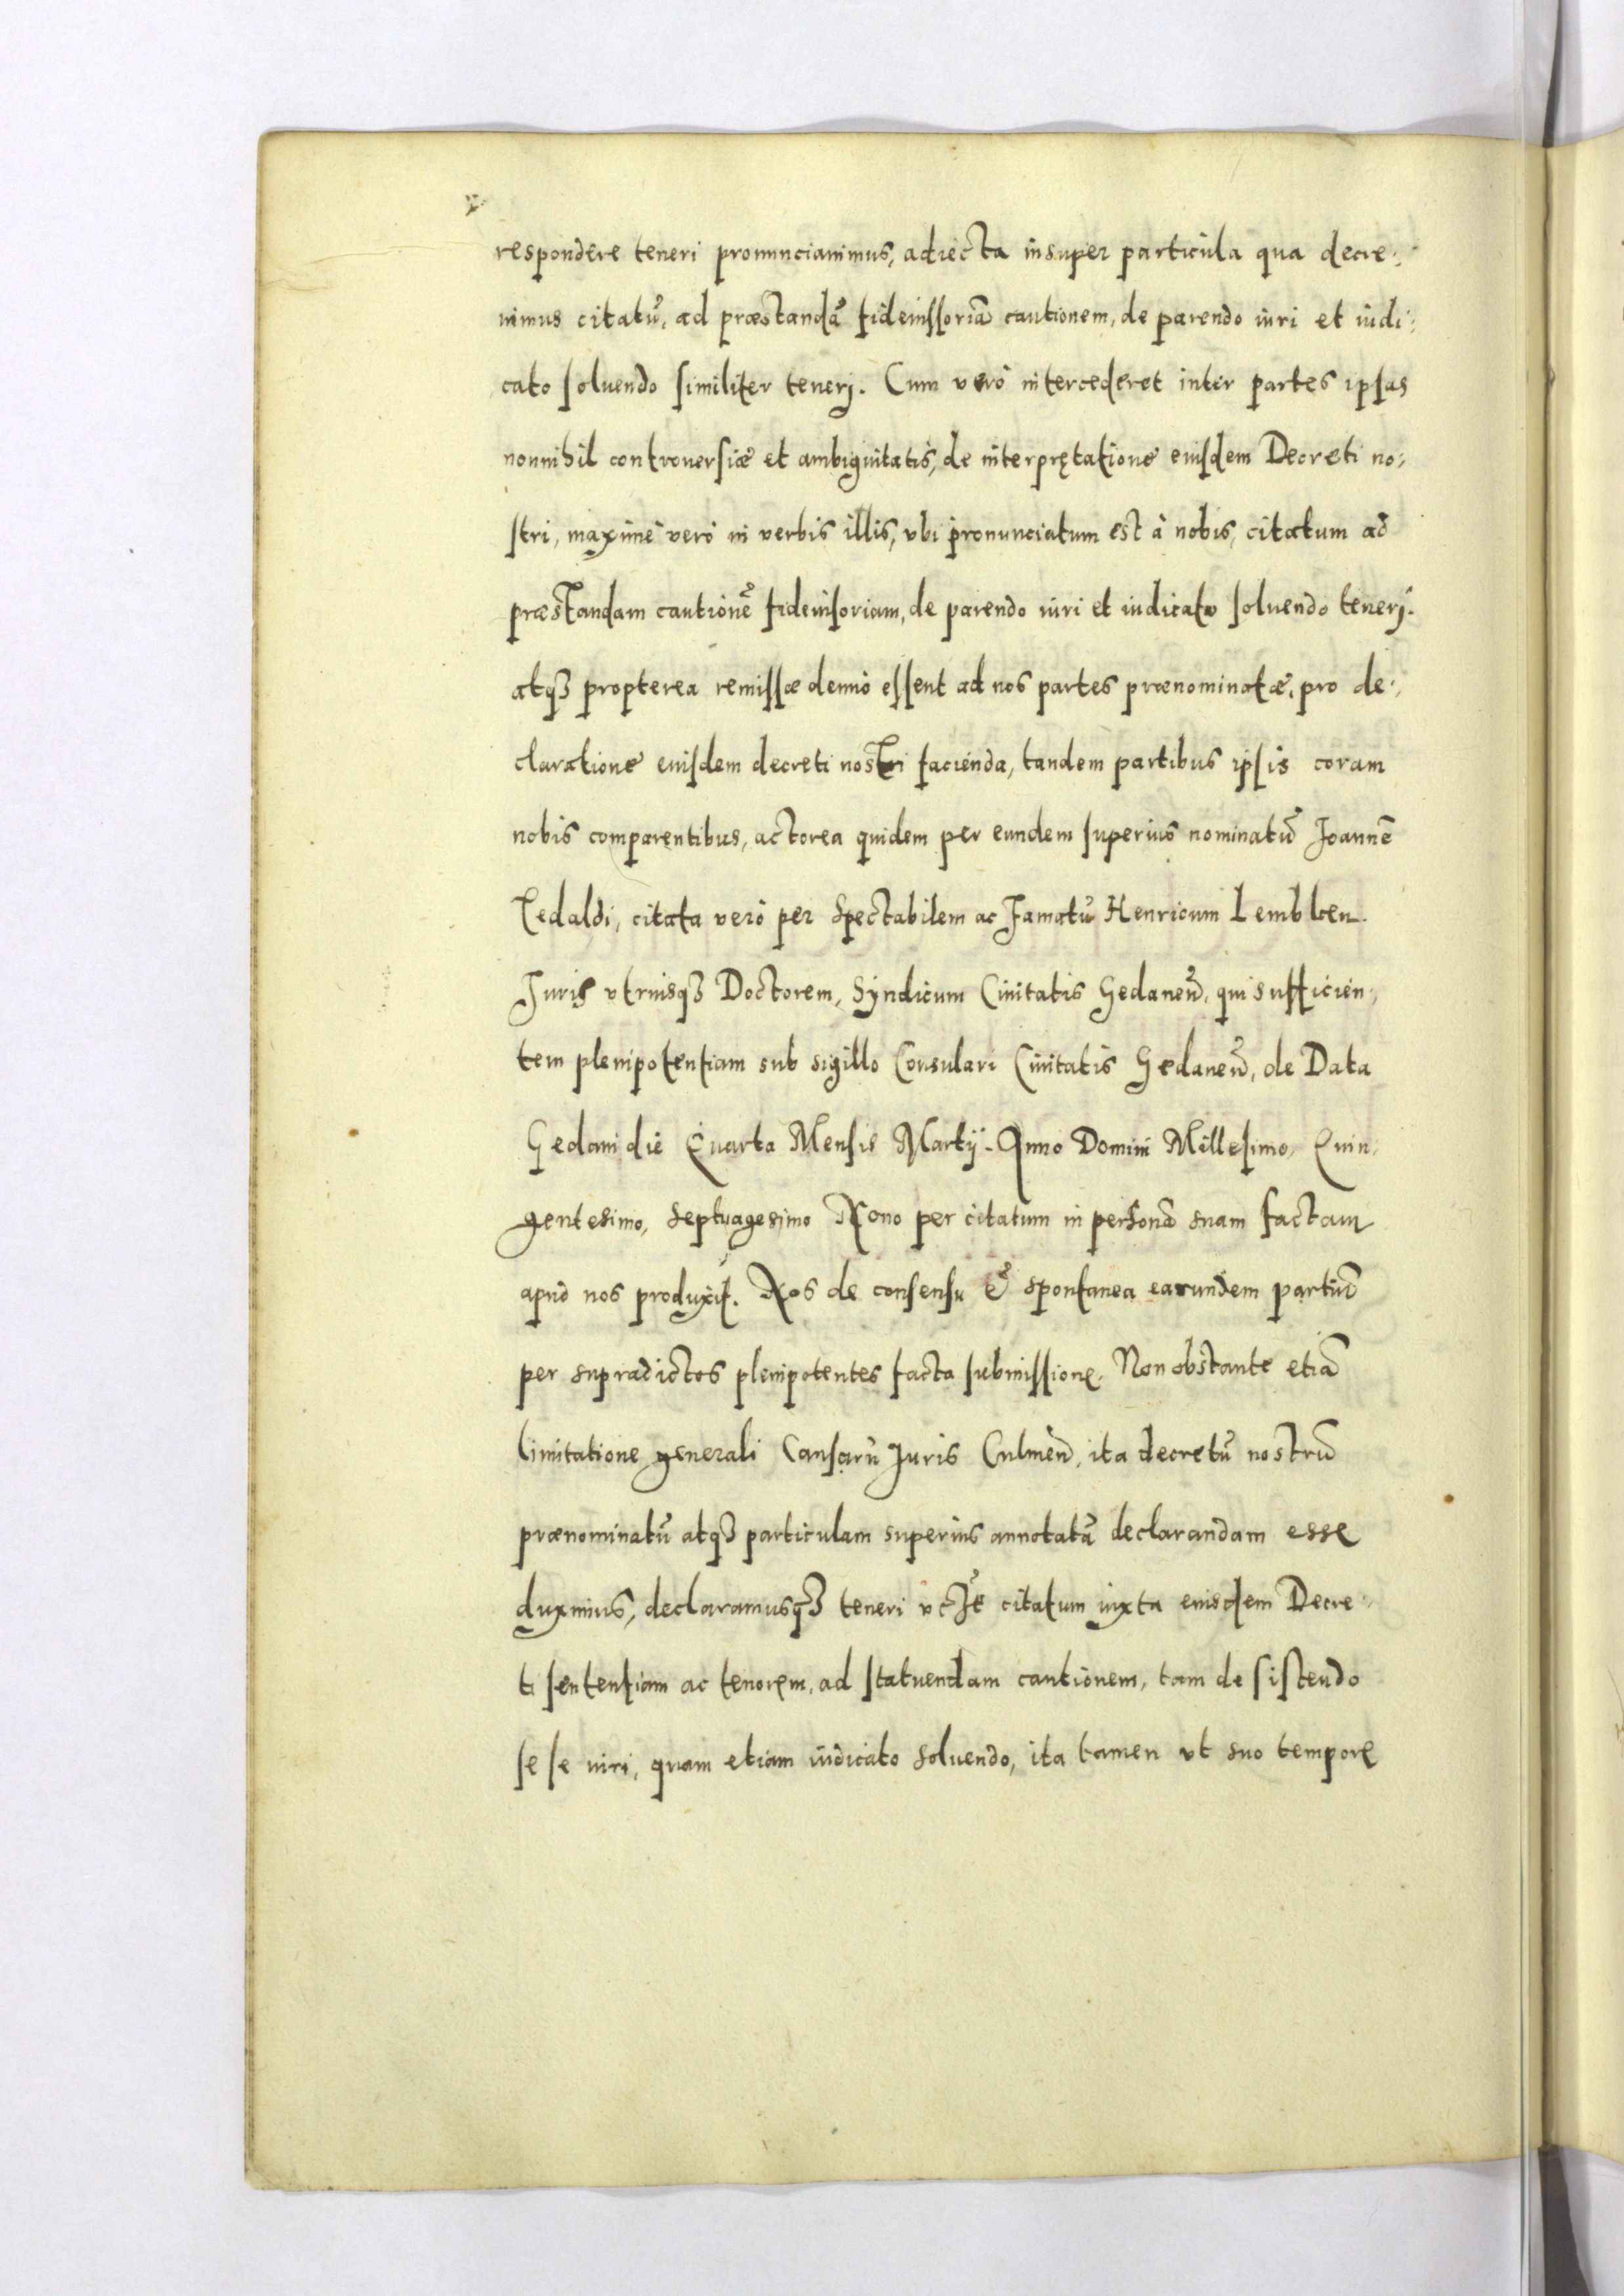 respondere teneri pronunciauimus, adiecta insuper particula qua decre-
uimus citatũ, ad præstandã fideiussoriã cautionem, de parendo iuri et iudi-
cato soluendo similiter teneri. Cum verò intercederet inter partes ipsas
nonnihil controuersiæ et ambiguitatis, de interpretatione eiusdem Decreti no-
stri, maximè verò in verbis illis, vbi pronunciatum est à nobis, citatum ad
præstandam cautionẽ fideiussoriam, de parendo iuri et iudicato soluendo teneri.
atqȝ propterea remissæ denuò essent ad nos partes prænominatæ, pro de-
claratione eiusdem decreti nostri facienda, tandem partibus ipsis coram
nobis comparentibus, actorea quidem per eundem superius nominatũ Joannẽ
Tedaldi, citata verò per Spectabilem ac Famatũ Henricum Lemblcen.
Juris vtriusqȝ Doctorem, Syndicum Ciuitatis Gedaneñ, qui sufficien-
tem plenipotentiam sub sigillo Consulari Ciuitatis Gedaneñ, de Data
Gedani die Quarta Mensis Martÿ. Anno Domini Millesimo, Quin-
gentesimo, Septuagesimo Nono per citatum in personã suam factam
apud nos produxit. Nos de consensu & spontanea earundem partiũ
per supradictos plenipotentes facta submissione, Non obstante etiã
limitatione generali Causarũ Juris Culmeñ, ita decretũ nostrũ
prænominatũ atqȝ particulam superius annotatã declarandam esse
duximus, declaramusqȝ teneri citatum iuxta eiusdem Decre-
ti sententiam ac tenorem, ad statuendam cautionem, tam de sistendo
se se iuri, quam etiam iudicato soluendo, ita tamen vt suo tempore